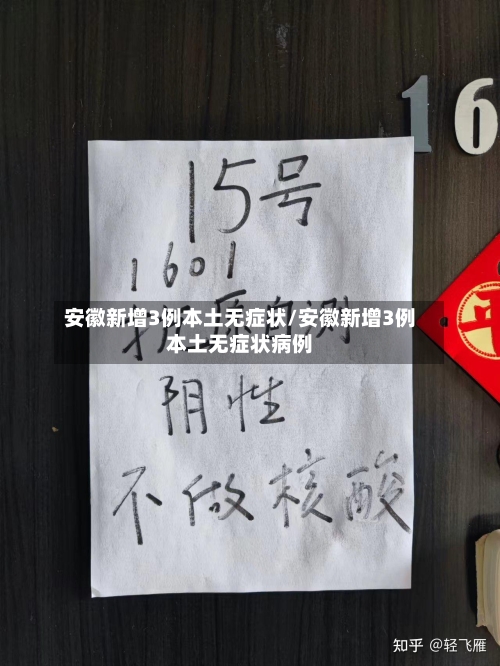 16
15号
1601
抗原自测
安徽新增3例本土无症状/安徽新增3例
本土无症状病例
阴性
不做核酸
知乎 @轻飞雁